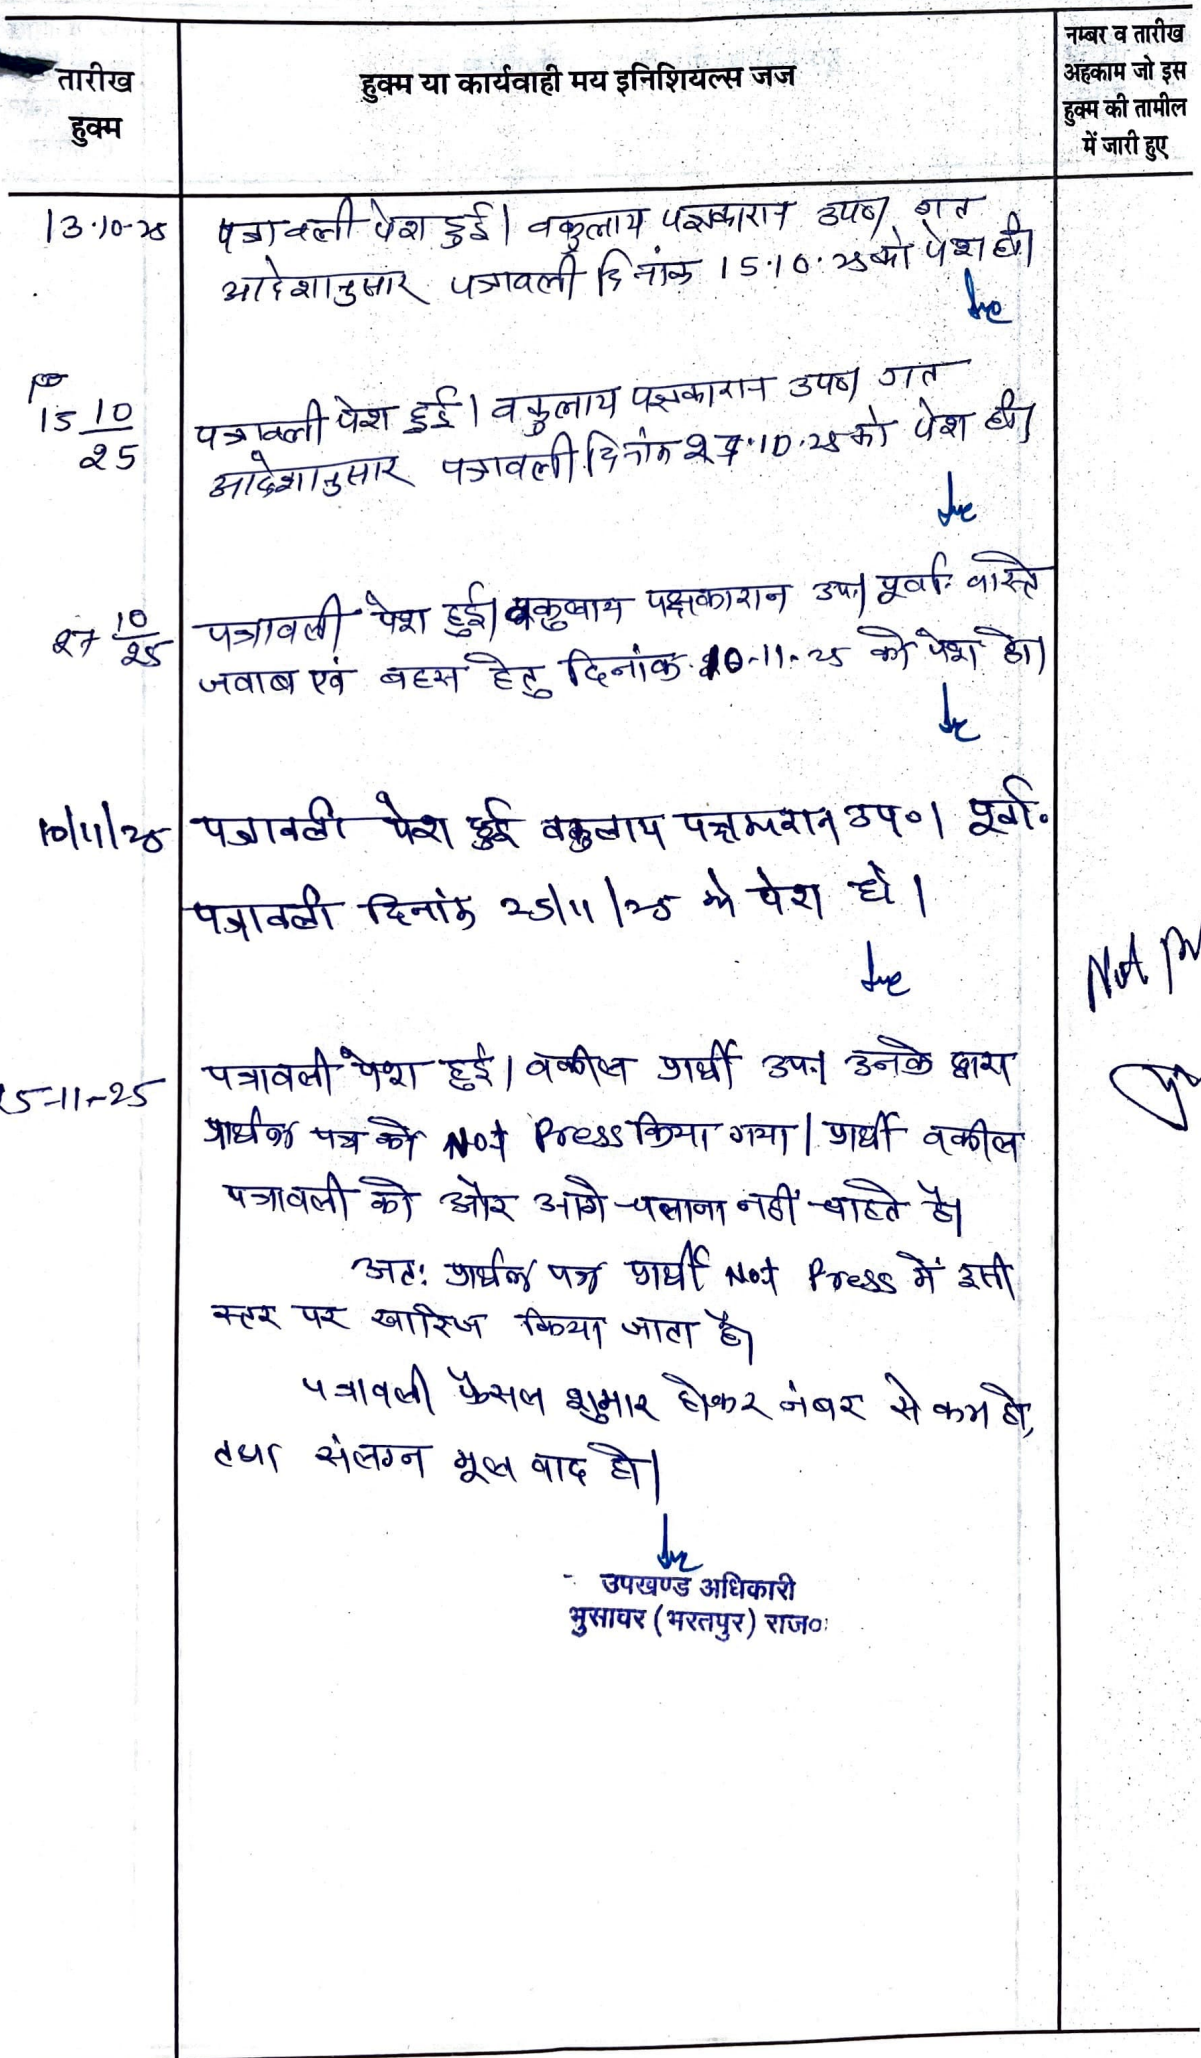 तारीख
हुक्म
हुक्म या कार्यवाही मय इनिशियल्स जज
नम्बर व तारीख
अहकाम जो इस
हुक्म की तामील
में जारी हुए
13.10-25
पत्रावली पेश हुई। वकुलाय पक्षकारान उप० गत
आदेशानुसार पत्रावली दिनांक 15.10.25 को पेश हो।
15 10/25
पत्रावली पेश हुई। वकुलाय पक्षकारान उप० गत
आदेशानुसार पत्रावली दिनांक 27.10.25 को पेश हो।
27 10/25
पत्रावली पेश हुई। वकुलाय पक्षकारान उप.। पूर्वा. वास्ते
जवाब एवं बहस हेतु दिनांक 10-11-25 को पेश हो।
10/11/25
पत्रावली पेश हुई वकुलाय पक्षकारान उप०। पूर्वा.
पत्रावली दिनांक 25/11/25 को पेश हो।
Not
5-11-25
पत्रावली पेश हुई। वकील प्रार्थी उप.। उनके द्वारा
प्रार्थना पत्र को Not Press किया गया। प्रार्थी वकील
पत्रावली को और आगे चलाना नहीं चाहते है।
अत: प्रार्थना पत्र प्रार्थी Not Press में इसी
स्तर पर खारिज किया जाता है।
पत्रावली फैसल शुमार होकर नंबर से कम हो,
तथा संलग्न मूल वाद हो।
उपखण्ड अधिकारी
भुसावर (भरतपुर) राज०